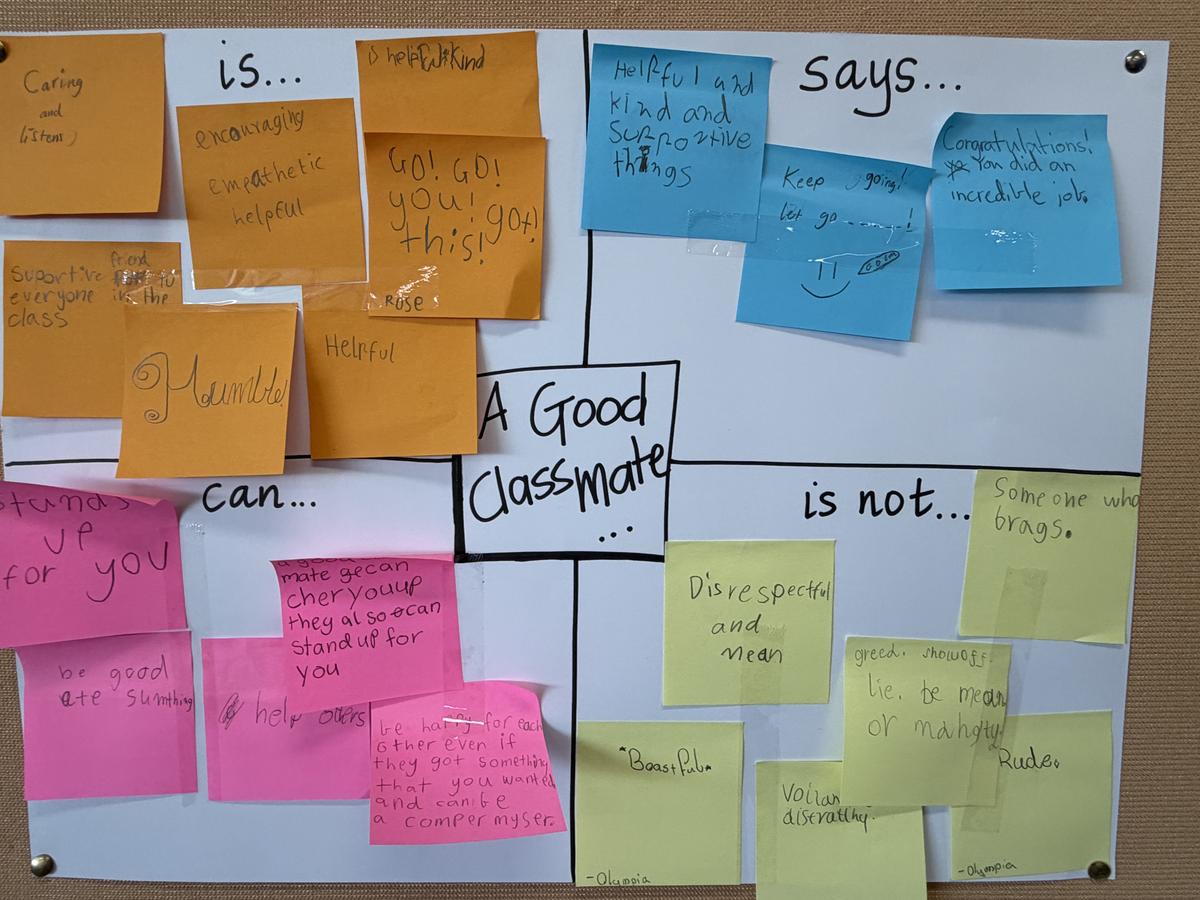 is...
Caring
and
listens
encouraging
empathetic
helpful
is helpful kind
GO! GO!
you! got!
this!
Rose
Suportive friend to
everyone in the
class
Humble
Helpful
says...
Helpful and
kind and
Supportive
things
Keep going!
let go !
Congratulations!
You did an
incredible job.
A Good
Classmate
...
can...
Stands
up
for you
mate gecan
cher you up
they also can
stand up for
you
be good
ate sumthing
help others
be happy for each
other even if
they got something
that you wanted
and can be
a comper myser.
is not...
Someone who
brags.
Disrespectful
and
mean
greed. showoff.
lie. be mean
or
*Boastful*
-Olympia
Voilan
Rude.
-Olympia